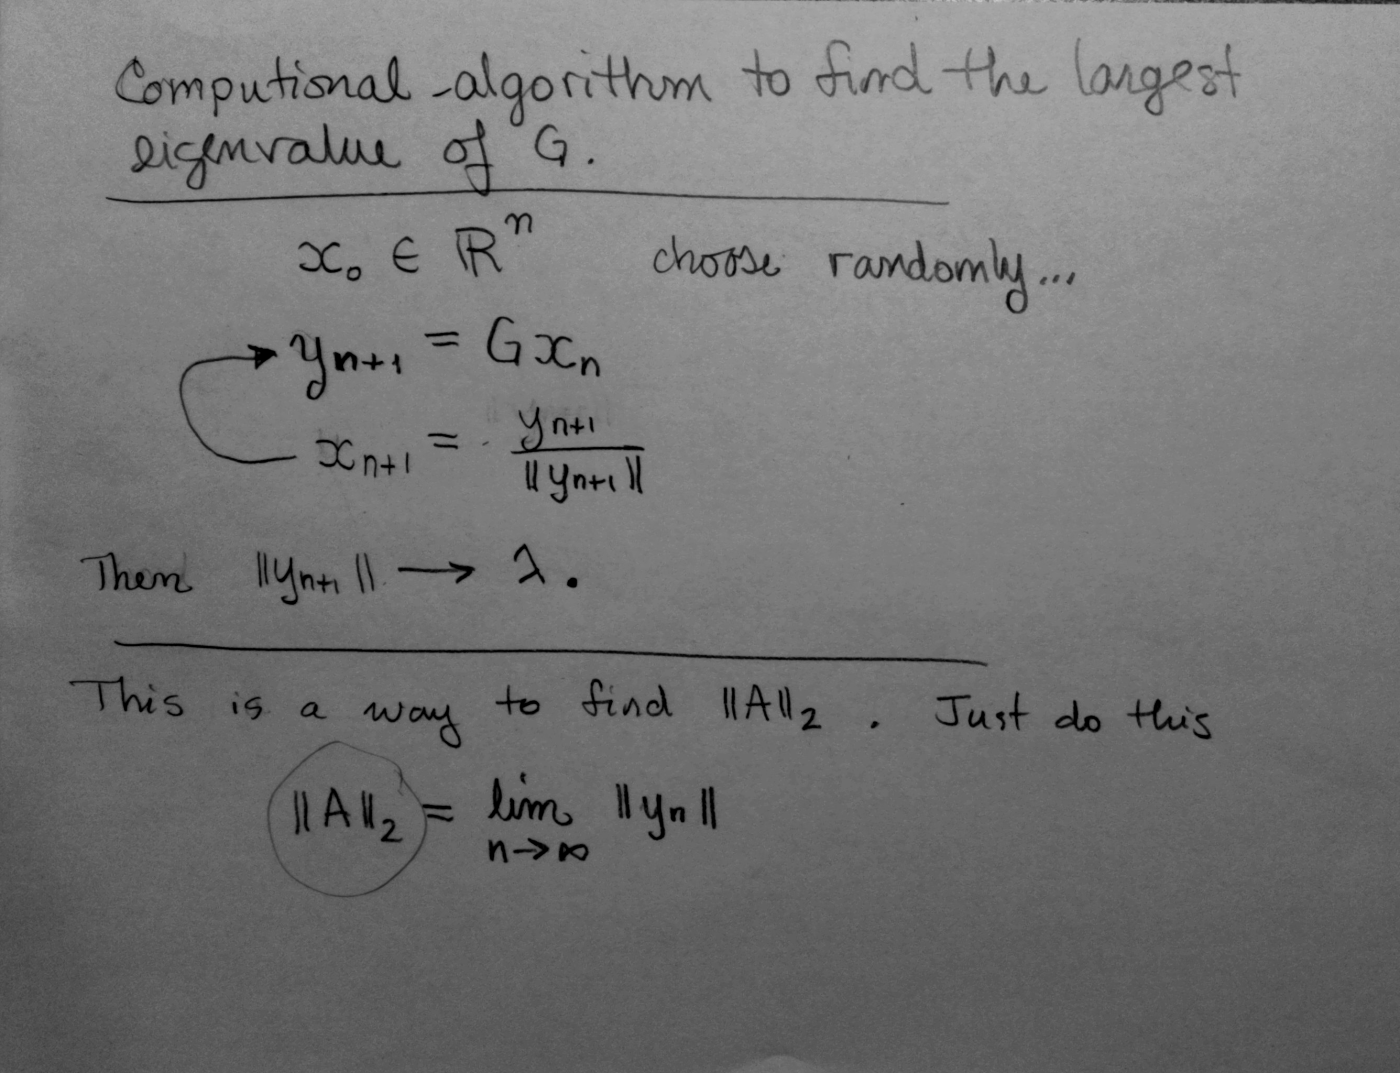 Computional algorithm to find the largest
eigenvalue of G.
x₀ ∈ ℝⁿ choose randomly...
yₙ₊₁ = Gxₙ
xₙ₊₁ = yₙ₊₁ / ||yₙ₊₁||
Then ||yₙ₊₁|| → λ.
This is a way to find ||A||₂. Just do this
||A||₂ = lim n→∞ ||yₙ||